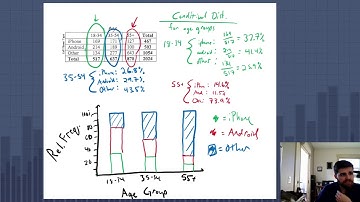 18-34 35-54 55+ Total
iPhone 169 171 127 467
Android 214 189 100 503
Other 134 277 643 1054
Total 517 637 870 2024
Conditional Dist.
for age groups
18-34
iphone: 169/517 = 32.7%
android: 214/517 = 41.4%
other: 134/517 = 25.9%
35-54
iPhone: 26.8%
Android: 29.7%
Other: 43.5%
55+
iPho: 14.6%
And: 11.5%
Oth: 73.9%
Rel. Freq.
100
80
60
40
20
18-34 35-54 55+
Age Group
= iPhone
= Android
= Other